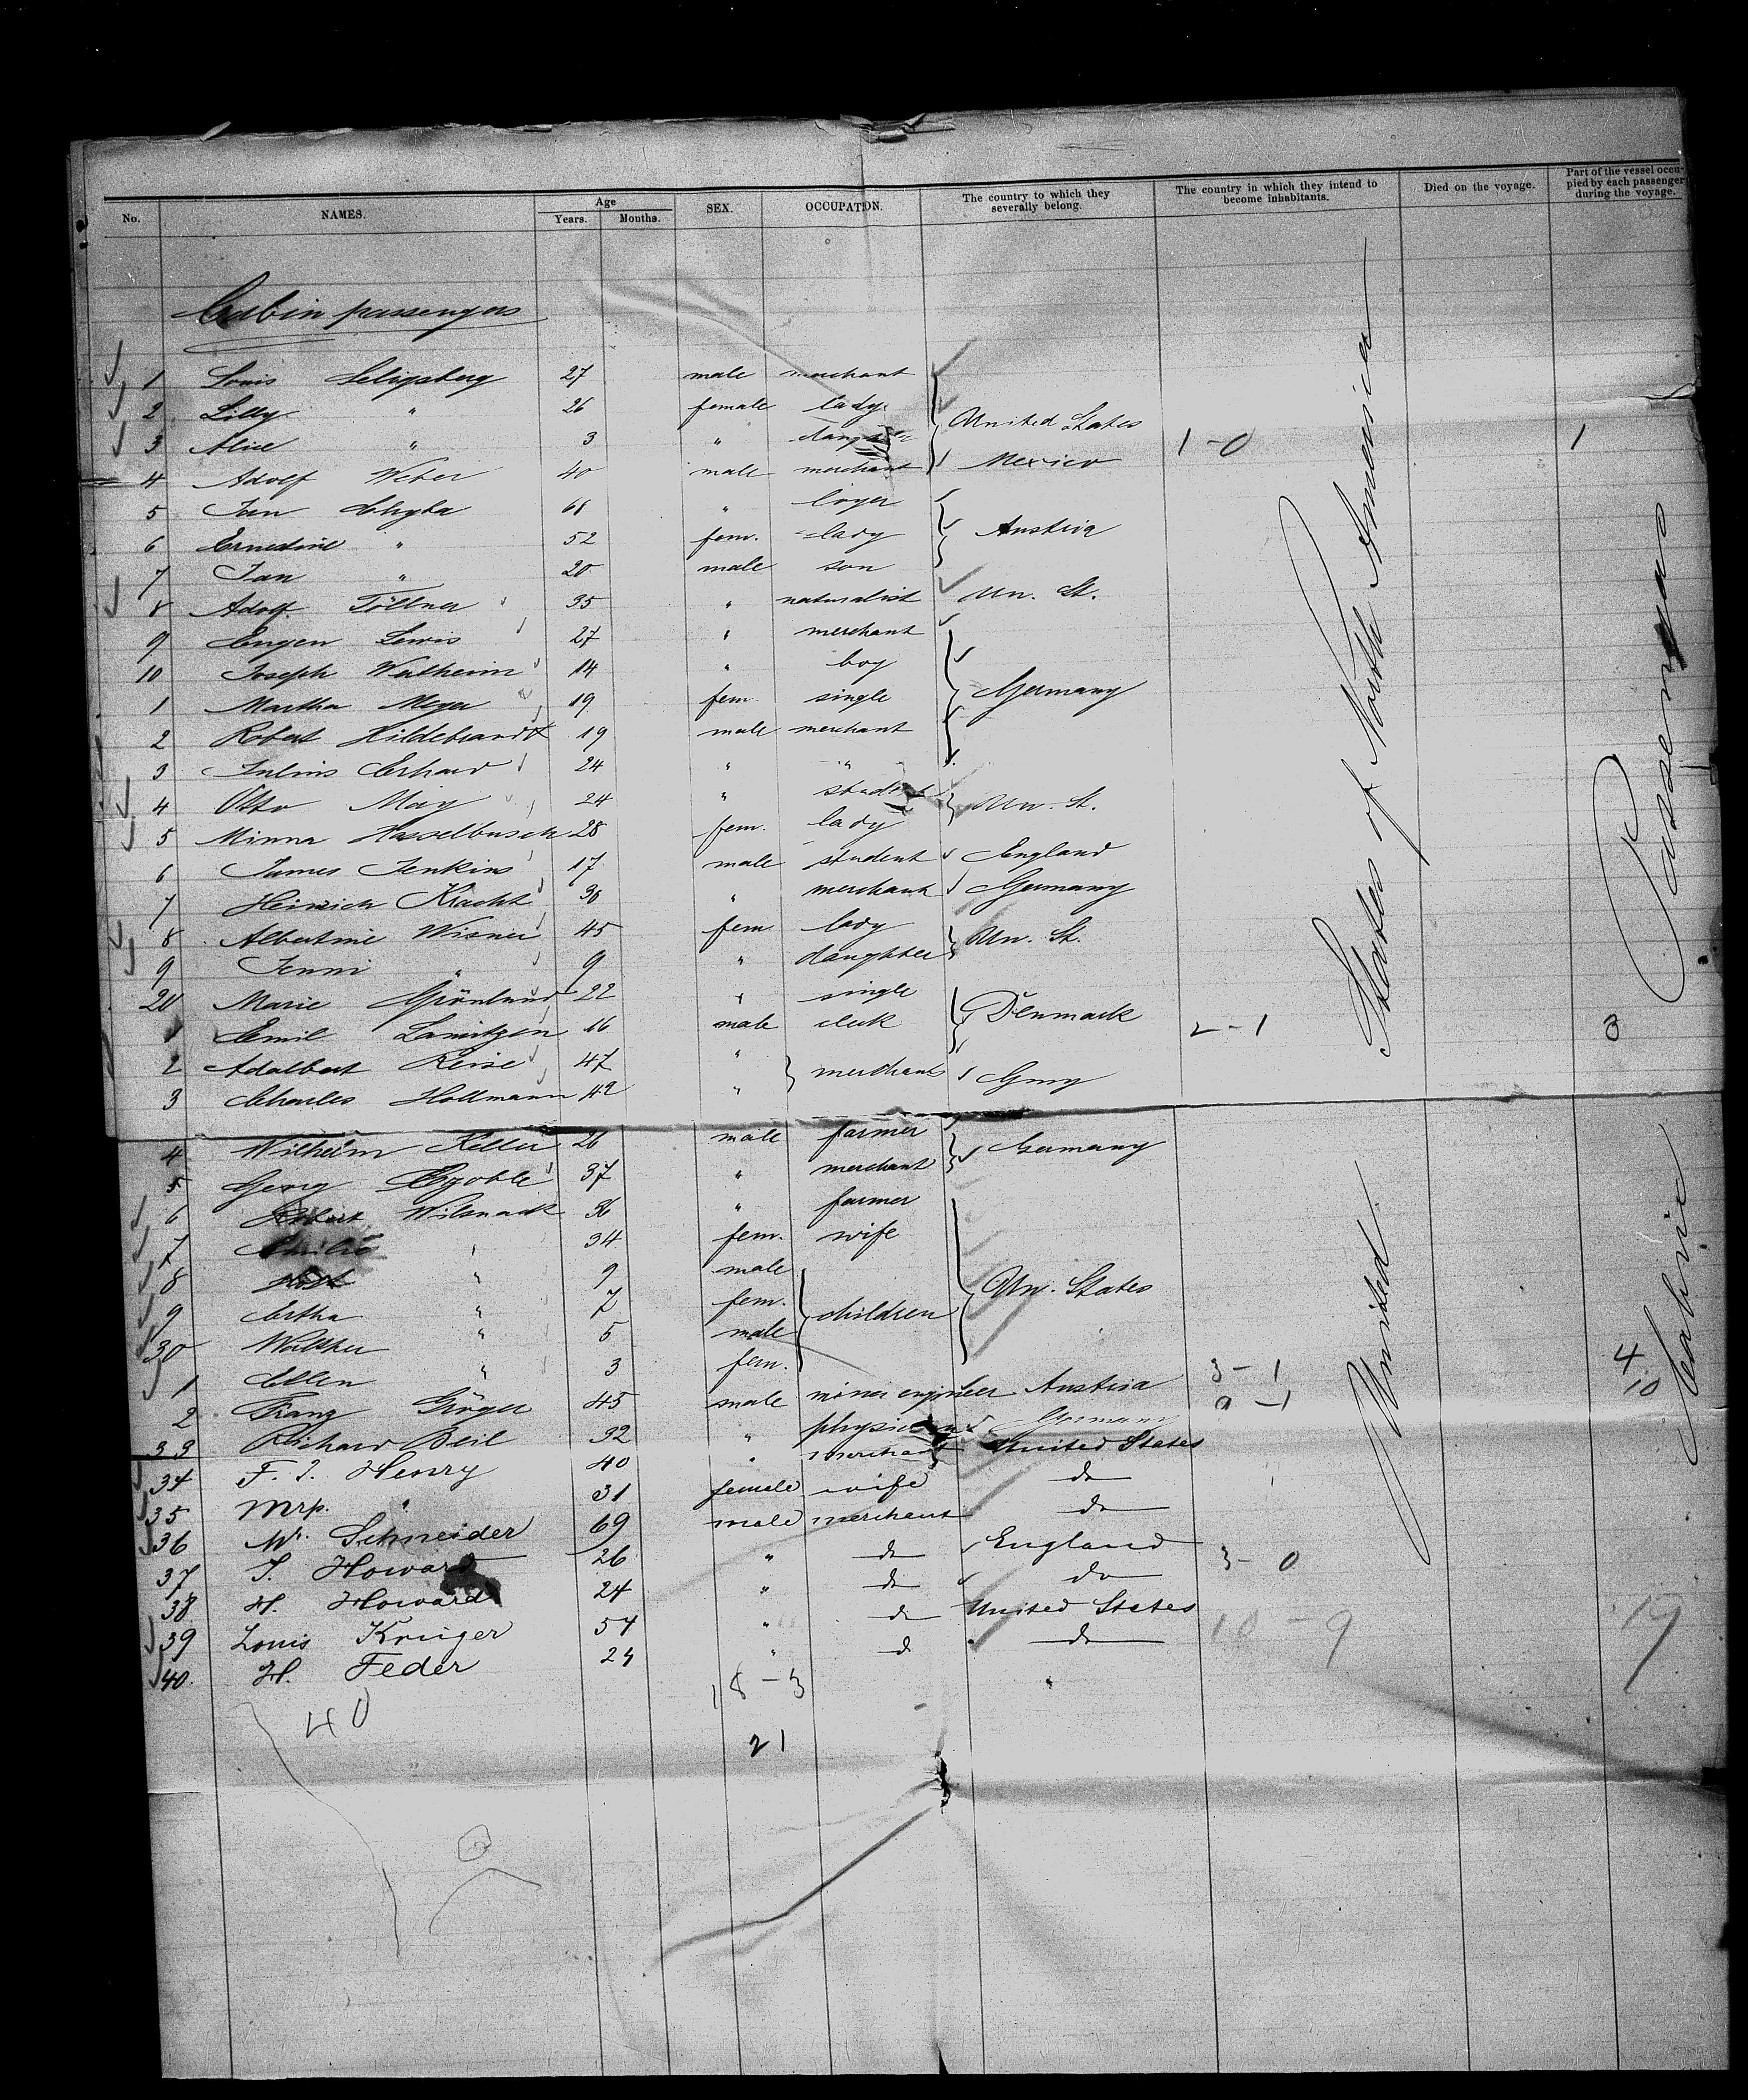 No. NAMES. Age Years. Months. SEX. OCCUPATION. The country to which they severally belong. The country in which they intend to become inhabitants. Died on the voyage. Part of the vessel occupied by each passenger during the voyage.
Cabin passengers
1 Louis Seligsberg 27 male merchant
2 Lilly " 26 female lady United States
3 Alice " 3 " daughter 1-0 1
4 Adolf Weber 40 male merchant Mexico
5 Jan Chyba 61 "
6 Ernestine " 52 fem. lady Austria
7 Jan " 20 male son
8 Adolf Töllner 35 " naturalist Un. St.
9 Eugen Lewis 27 " merchant
10 Joseph Wertheim 14 " boy
1 Martha Meyer 19 fem. single Germany
2 Robert Hildebrandt 19 male merchant
3 Julius Erhard 24 " "
4 Otto May 24 " student Un. St.
5 Minna Hasselbusch 28 fem. lady
6 James Jenkins 17 male student England
7 Heinrich Kracht 30 " merchant Germany
8 Albertine Wisner 45 fem lady Un. St.
9 Jenni " 9 " daughter
20 Marie Grönlund 22 " single
1 Emil 16 male clerk Denmark 2-1 3
2 Adalbert Reise 47 "
3 Charles Hollmann 42 " merchants Gmy
4 Wilhelm Keller 26 male farmer Germany
5 Georg 37 " merchant
6 Wilsnack 36 " farmer
7 " 34 fem. wife
8 " 9 male
9 Ertha " 7 fem. children Un. States
30 Walther " 5 male
1 Ellen " 3 fem. 3-1 4
2 Franz Gröger 45 male mine engineer Austria 9-1 10
33 Richard Beil 32 " physician German
34 F. J. Henry 40 " merchant United States
35 Mrs. " 31 female wife do
36 Mr. Schneider 69 male merchant do
37 J. Howard 26 " do England 3-0
38 H. Howard 24 " do do
39 Louis Krüger 54 " do United States 10-9 19
40. H. Feder 24 " do do
40 18-3
21
United States of North America
Passenger
Cabin